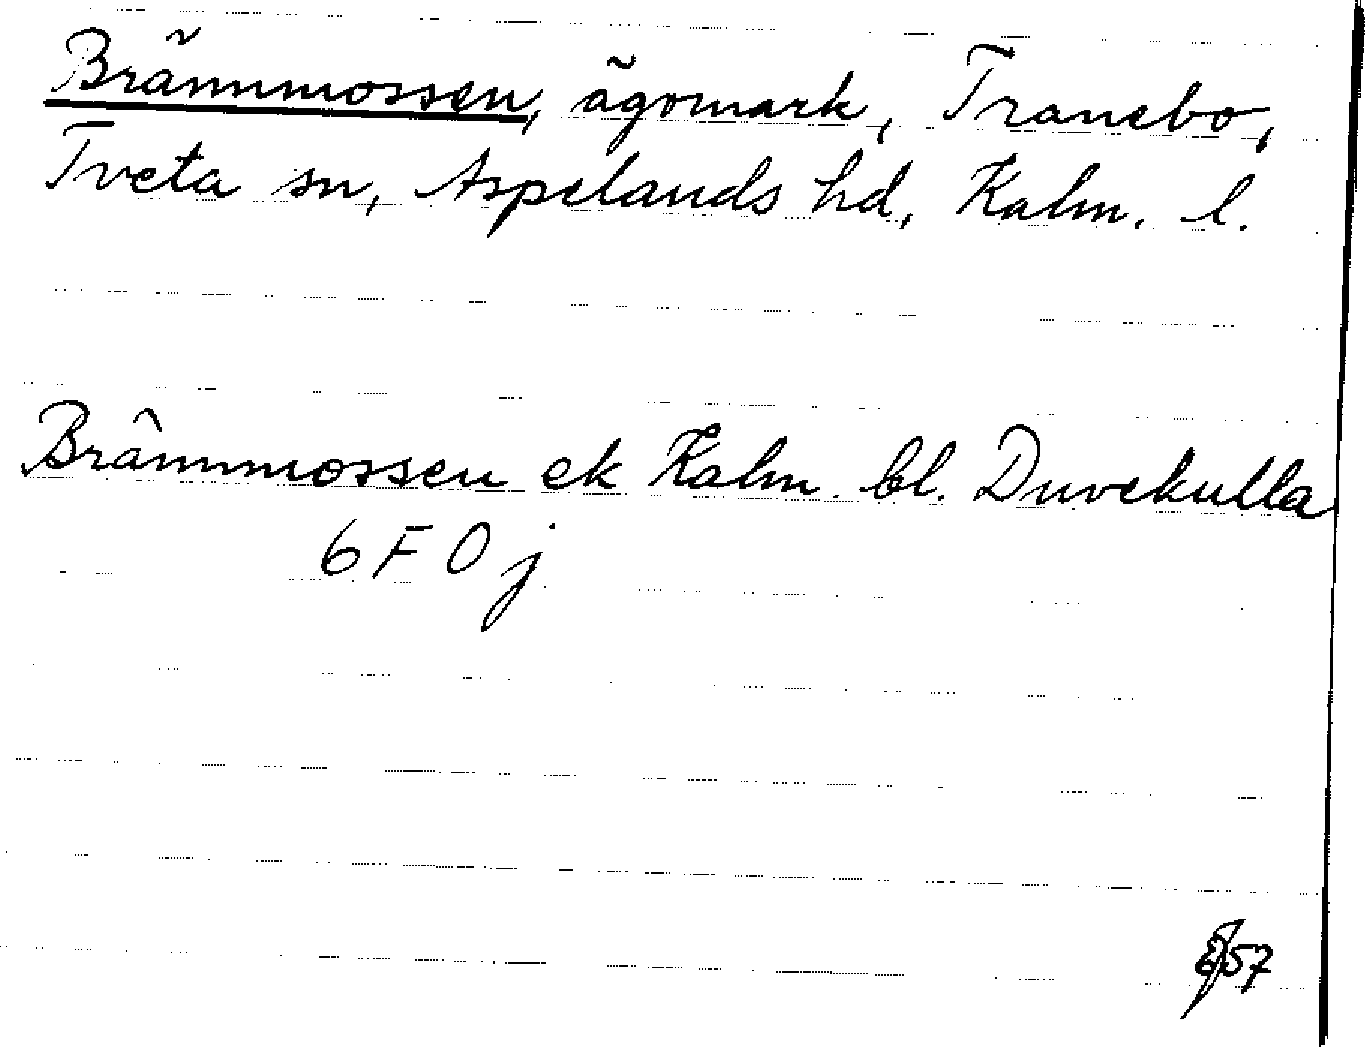 Brännmossen, ägomark, Tranebo,
Tveta sn, Aspelands hd, Kalm. l.
Brännmossen ek Kalm. bl. Duvekulla
6 F 0 j
57